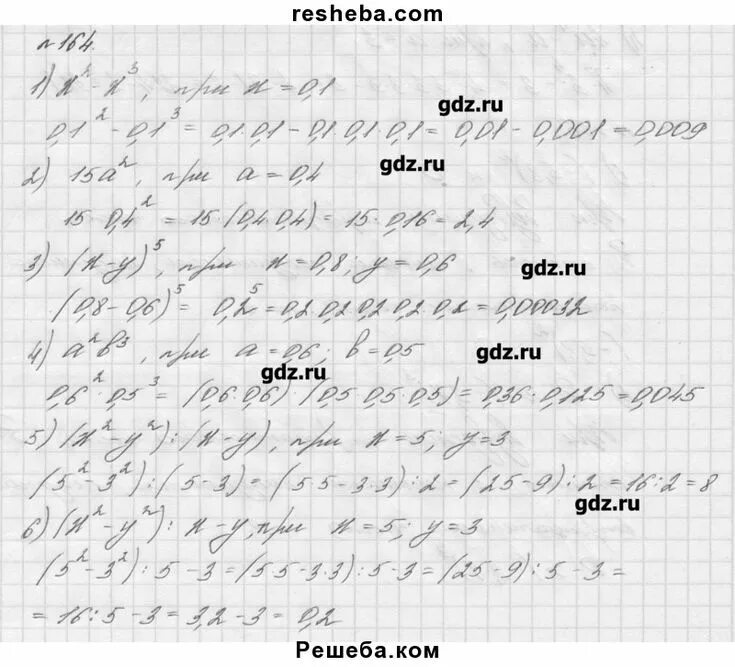 resheba.com
№164.
1) x² - x³, при x = 0,1
gdz.ru
0,1² - 0,1³ = 0,1·0,1 - 0,1·0,1·0,1 = 0,01 - 0,001 = 0,009
gdz.ru
2) 15a², при a = 0,4
15·0,4² = 15·(0,4·0,4) = 15·0,16 = 2,4
3) (x-y)⁵, при x = 0,8; y = 0,6
gdz.ru
(0,8-0,6)⁵ = 0,2⁵ = 0,2·0,2·0,2·0,2·0,2 = 0,00032
4) a²b³, при a = 0,6, b = 0,5
gdz.ru
gdz.ru
0,6²·0,5³ = (0,6·0,6)·(0,5·0,5·0,5) = 0,36·0,125 = 0,045
5) (x²-y²):(x-y), при x = 5; y = 3
(5²-3²):(5-3) = (5·5-3·3):2 = (25-9):2 = 16:2 = 8
gdz.ru
6) (x²-y²): x-y, при x = 5; y = 3
(5²-3²):5-3 = (5·5-3·3):5-3 = (25-9):5-3 =
= 16:5-3 = 3,2-3 = 0,2
Решеба.ком